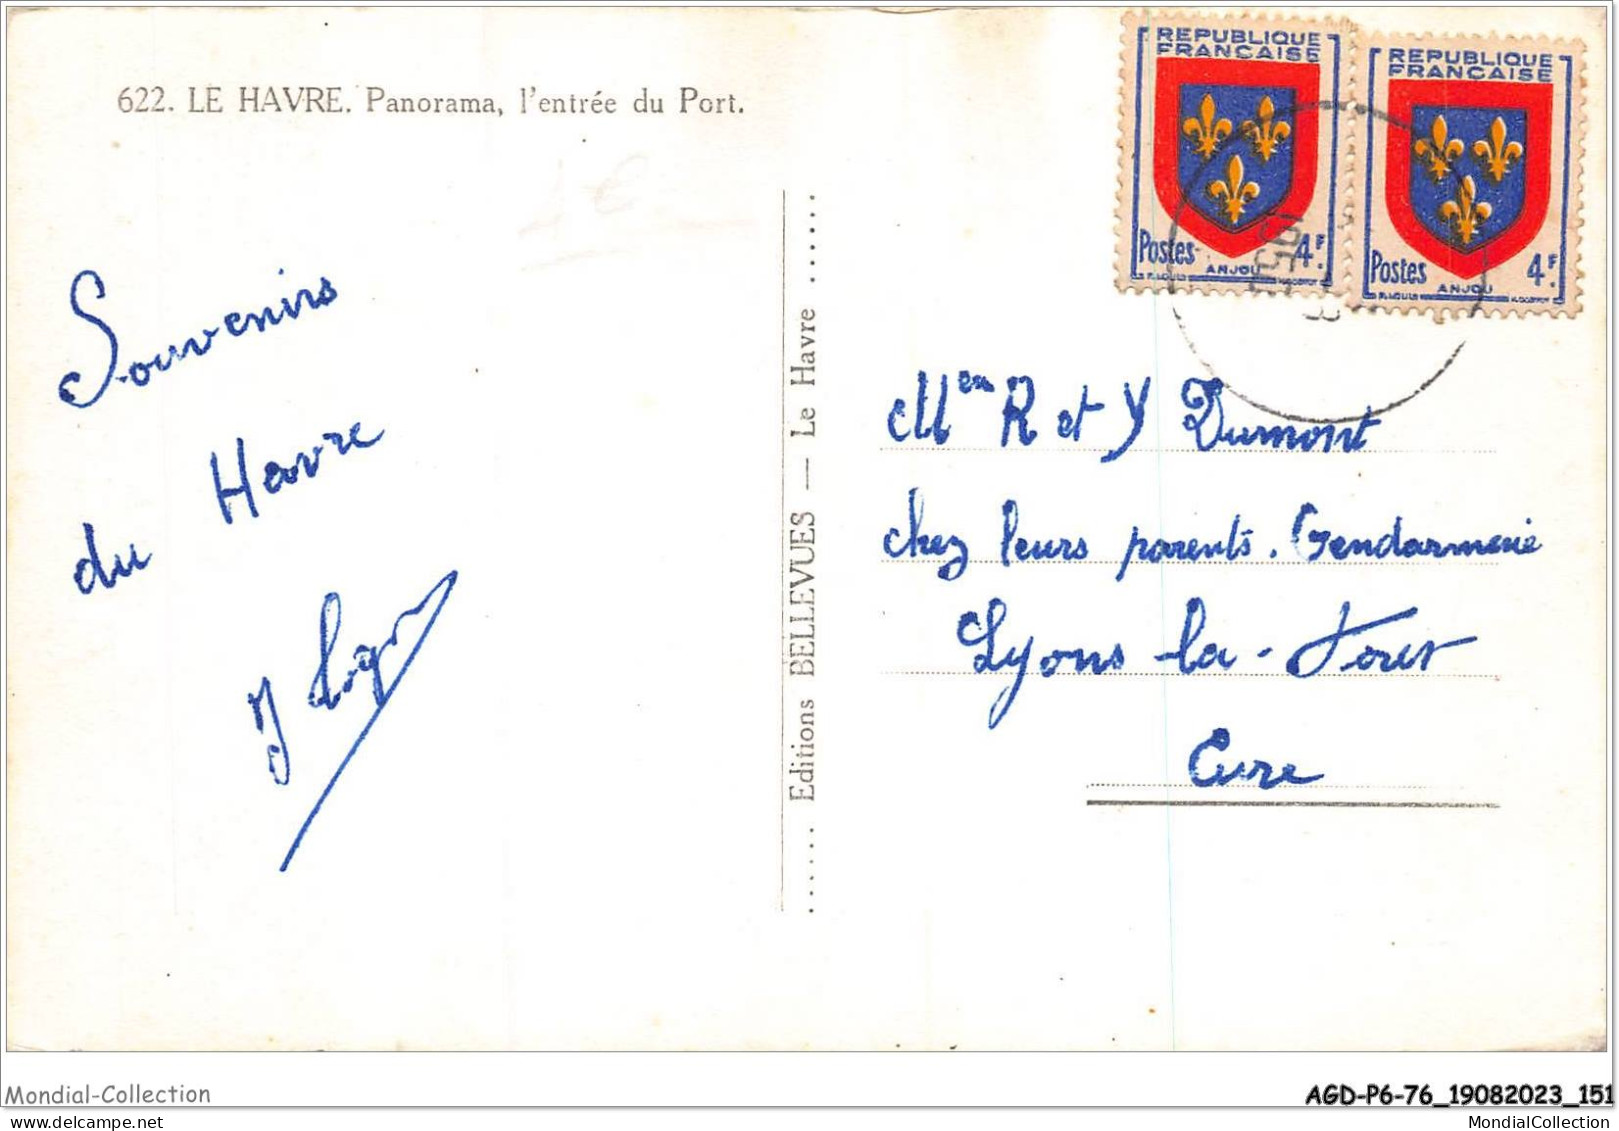 622. LE HAVRE. Panorama, l'entrée du Port.
Souvenirs
du Havre
Editions BELLEVUES — Le Havre
REPUBLIQUE
FRANÇAISE
Postes 4F.
ANJOU
REPUBLIQUE
FRANÇAISE
Postes 4F.
ANJOU
R et Y Dumont
chez leurs parents. Gendarmerie
Lyons-la-Foret
Eure
Mondial-Collection
AGD-P6-76_19082023_151
MondialCollection